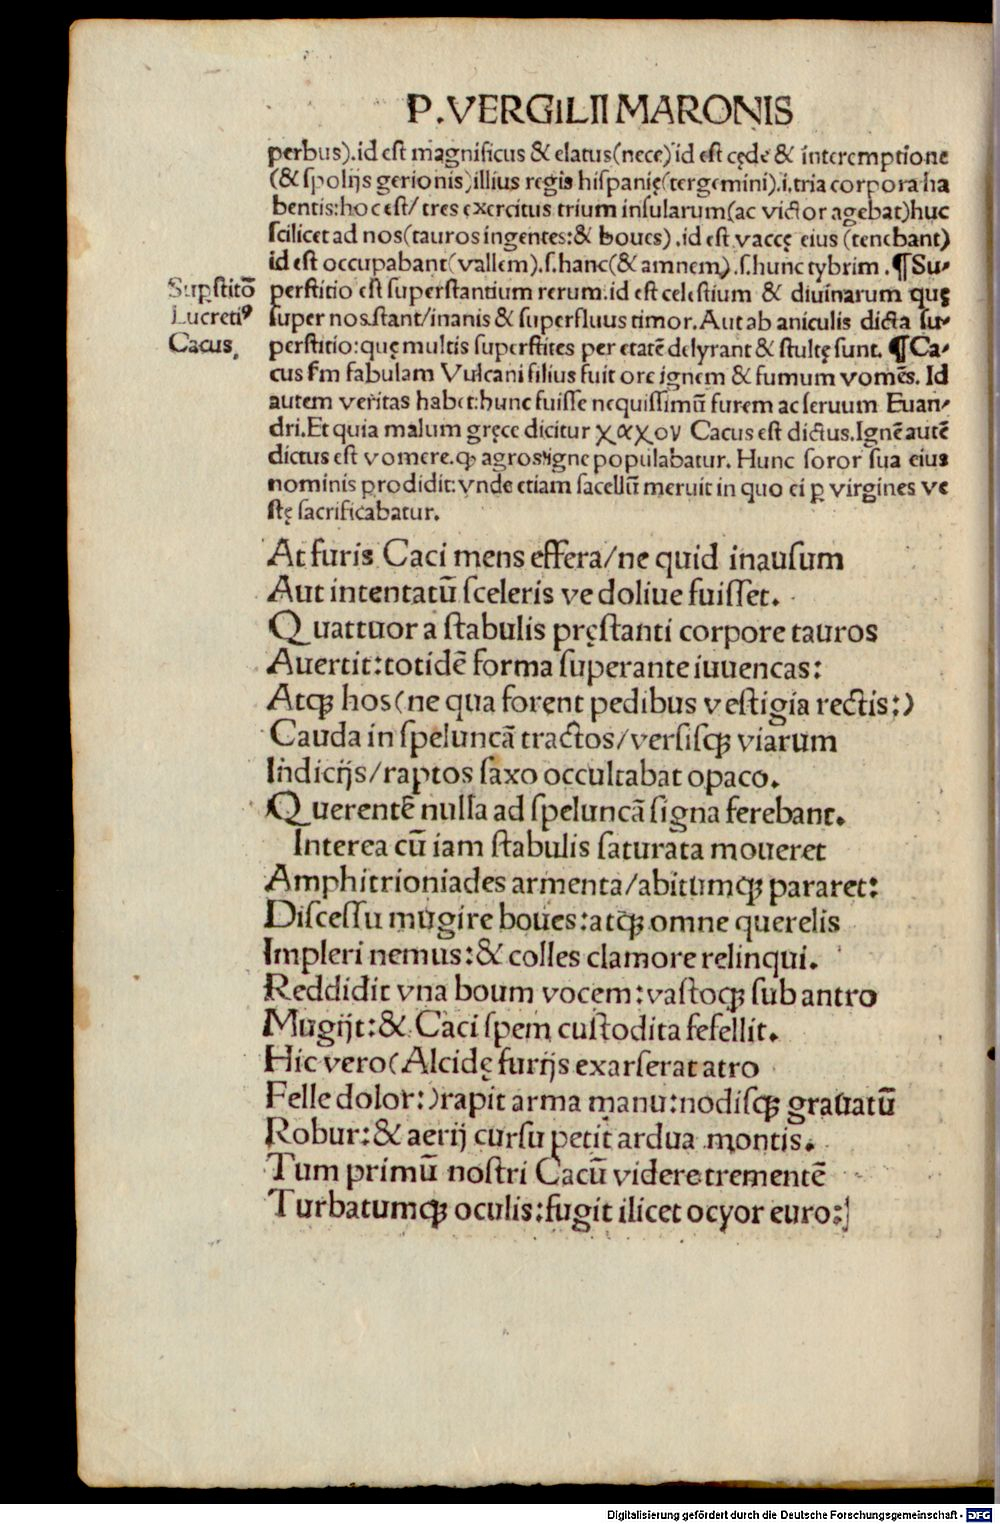 P.VERGILII MARONIS
perbus).id eſt magnificus & elatus(nece) id eſt cęde & interemptione
(& ſpolijs gerionis)illius regis hiſpanię(tergemini).i.tria corpora ha
bentis:hoc eſt/ tres exercitus trium inſularum(ac victor agebat)huc
ſcilicet ad nos(tauros ingentes:& boues) .id eſt vaccę eius (tenebant)
id eſt occupabant(vallem).ſ.hanc(& amnem).ſ.hunc tybrim .¶Su-
Supſtitõ
perſtitio eſt ſuperſtantium rerum:id eſt celeſtium & diuinarum quę
Lucretiꝰ
ſuper nos ſtant/inanis & ſuperfluus timor.Aut ab aniculis dicta ſu-
Cacus.
perſtitio:quę multis ſuperſtites per etatẽ delyrant & ſtultę ſunt. ¶Ca-
cus ſm fabulam Vulcani filius fuit ore ignem & fumum vomẽs. Id
autem veritas habet:hunc fuiſſe nequiſſimũ furem ac ſeruum Euan-
dri.Et quia malum gręce dicitur χαχον Cacus eſt dictus.Ignẽ autẽ
dictus eſt vomere.ꝙ agros igne populabatur. Hunc ſoror ſua eius
nominis prodidit:vnde etiam ſacellũ meruit in quo ei ꝑ virgines ve
ſtę ſacrificabatur.
At furis Caci mens effera/ne quid inauſum
Aut intentatũ ſceleris ve doliue fuiſſet.
Quattuor a ſtabulis pręſtanti corpore tauros
Auertit:totidẽ forma ſuperante iuuencas:
Atqꝫ hos(ne qua forent pedibus veſtigia rectis:)
Cauda in ſpeluncã tractos/verſiſqꝫ viarum
Indicijs/raptos ſaxo occultabat opaco.
Querentẽ nulla ad ſpeluncã ſigna ferebant.
Interea cũ iam ſtabulis ſaturata moueret
Amphitrioniades armenta/abitumqꝫ pararet:
Diſceſſu mugire boues:atqꝫ omne querelis
Impleri nemus:& colles clamore relinqui.
Reddidit vna boum vocem:vaſtoqꝫ ſub antro
Mugijt:& Caci ſpem cuſtodita fefellit.
Hic vero(Alcidę furijs exarſerat atro
Felle dolor:)rapit arma manu:nodiſqꝫ grauatũ
Robur:& aerij curſu petit ardua montis.
Tum primũ noſtri Cacũ videre trementẽ
Turbatumqꝫ oculis:fugit ilicet ocyor euro:
Digitalisierung gefördert durch die Deutsche Forschungsgemeinschaft - DFG